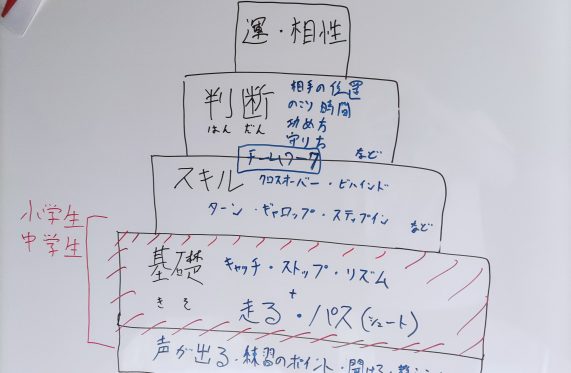 運・相性
判断
はんだん
相手の位置
のこり時間
攻め方
守り方
など
チームワーク
スキル
クロスオーバー・ビハインド
ターン・ギャロップ・ステップイン
など
小学生
中学生
基礎
きそ
キャッチ・ストップ・リズム
+
走る・パス(シュート)
声が出る・練習のポイント・聞ける・